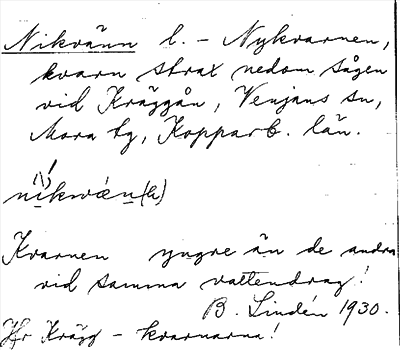 Nikvänn l. – Nykvarnen,
kvarn strax nedom sågen
vid Kräggån, Venjans sn,
Mora tg, Kopparb. län.
Kvarnen yngre än de andra
vid samma vattendrag!
B. Lindén 1930.
Jfr Krägg – kvarnarna!